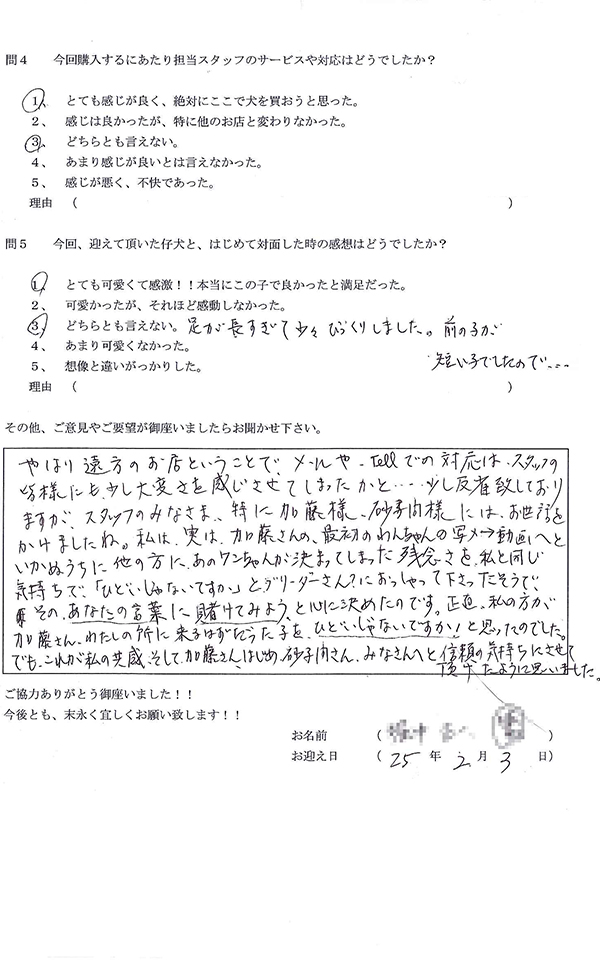 問4 今回購入するにあたり担当スタッフのサービスや対応はどうでしたか?
1、 とても感じが良く、絶対にここで犬を買おうと思った。
2、 感じは良かったが、特に他のお店と変わりなかった。
3、 どちらとも言えない。
4、 あまり感じが良いとは言えなかった。
5、 感じが悪く、不快であった。
理由 ( )
問5 今回、迎えて頂いた仔犬と、はじめて対面した時の感想はどうでしたか?
1、 とても可愛くて感激!!本当にこの子で良かったと満足だった。
2、 可愛かったが、それほど感動しなかった。
3、 どちらとも言えない。足が長すぎて少々びっくりしました。前の子が
4、 あまり可愛くなかった。
短い子でしたので…
5、 想像と違いがっかりした。
理由 ( )
その他、ご意見やご要望が御座いましたらお聞かせ下さい。
やはり遠方のお店ということで、メールや、tellでの対応は、スタッフの
皆様にも少し大変さを感じさせてしまったかと……少し反省致しており
ますが、スタッフのみなさま、特に加藤様、砂子間様には、お世話を
かけましたね。私は、実は、加藤さんの、最初のわんちゃんの写メ→動画へと
いかぬうちに他の方に、あのワンちゃんが決まってしまった残念さを、私と同じ
気持ちで「ひどいじゃないですか」とブリーダーさん?におっしゃって下さったそうで、
その、あなたの言葉に賭けてみよう、と心に決めたのです。正直、私の方が
加藤さん、わたしの所に来るはずだった子を、ひどいじゃないですか!と思ったのでした。
でも、これが私の共感、そして加藤さんはじめ、砂子間さん、みなさんへと信頼の気持ちにさせて
頂けたように思いました。
ご協力ありがとう御座いました!!
今後とも、末永く宜しくお願い致します!!
お名前 ( )
お迎え日 ( 25 年 2 月 3 日)